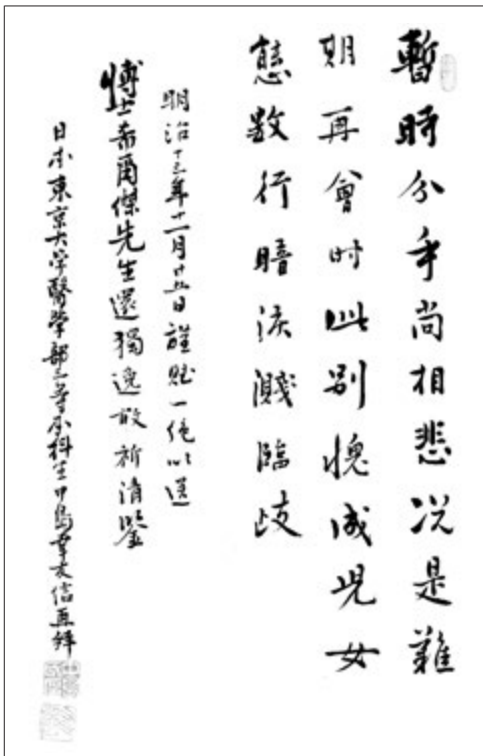 暫時分手尚相悲况是難
期再會时此别愧成児女
態数行暗涙濺臨歧
明治十三年十一月廿五日謹賦一絶以送
愽士希爾傑先生還獨逸敢祈清鑒
日本東京大学醫学部三等本科生中島友信再拜